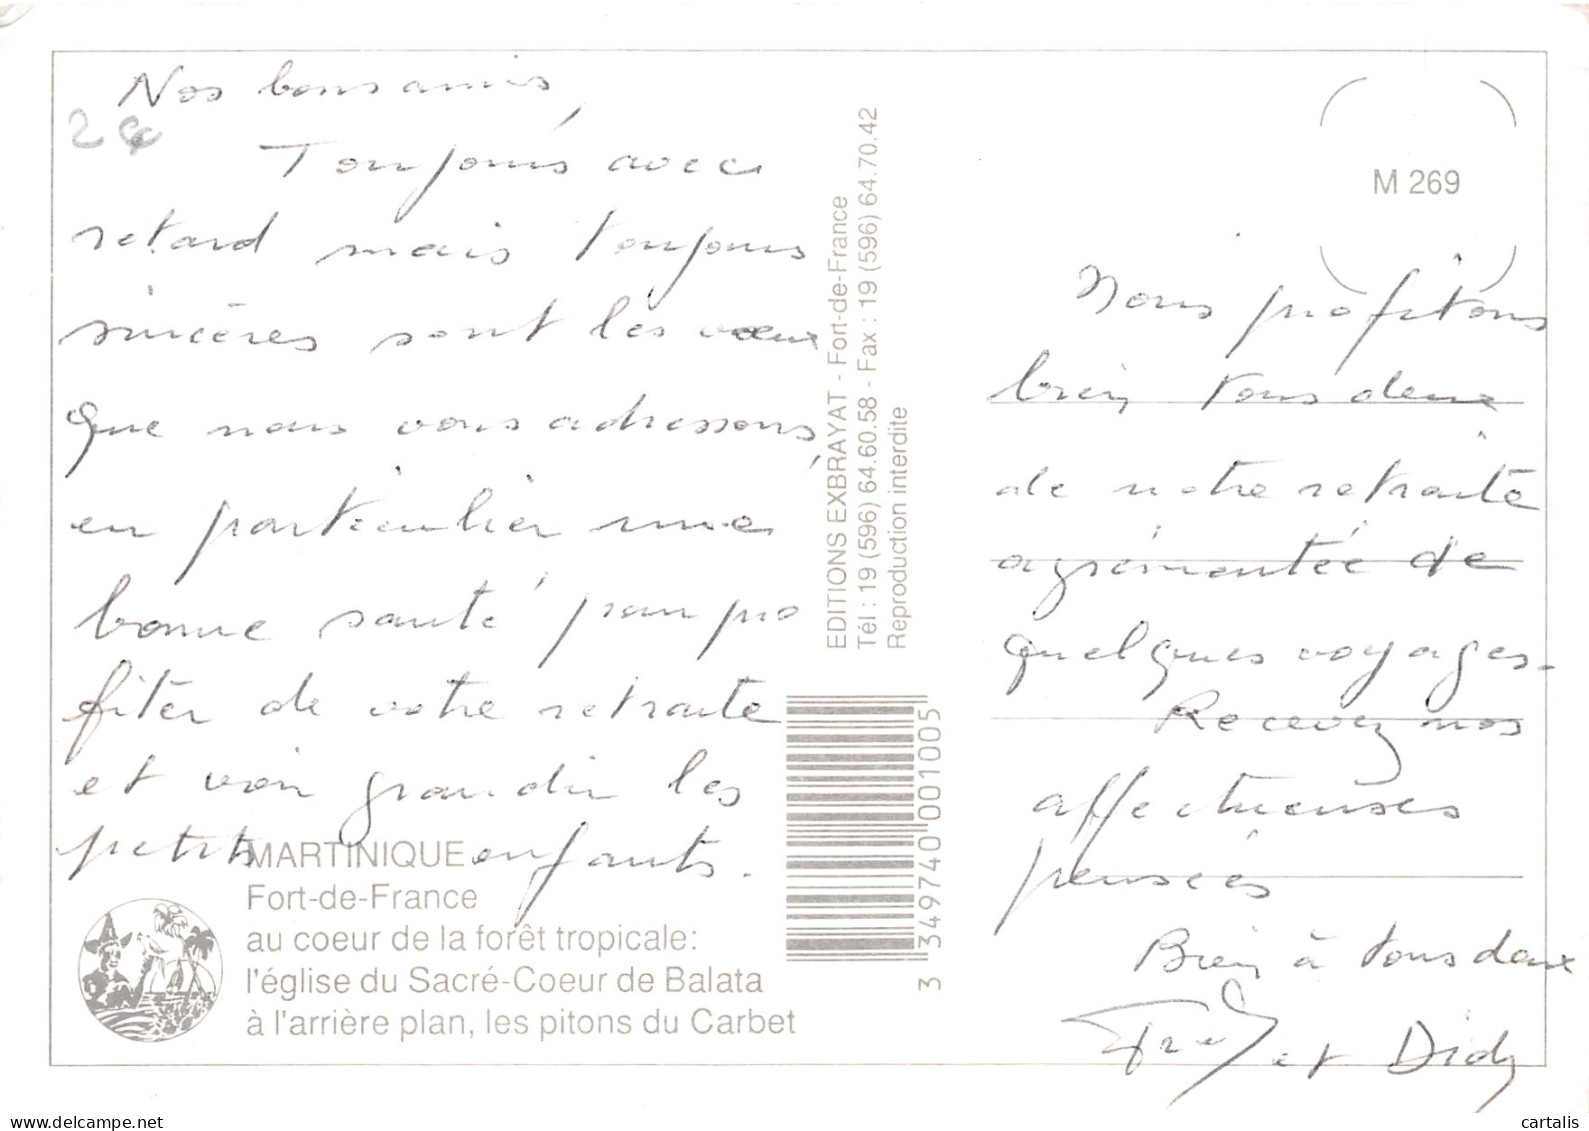 Nos bons amis,
2€
Toujours avec
retard mais toujours
sincères sont les vœux
que nous vous adressons,
en particulier une
bonne santé pour pro
fiter de votre retraite
et voir grandir les
petits enfants.
MARTINIQUE
Fort-de-France
au coeur de la forêt tropicale:
l'église du Sacré-Coeur de Balata
à l'arrière plan, les pitons du Carbet
EDITIONS EXBRAYAT - Fort-de-France
Tél : 19 (596) 64.60.58 - Fax : 19 (596) 64.70.42
Reproduction interdite
3 349740 001005
M 269
Nous profitons
bien tous deux
de notre retraite
agrémentée de
quelques voyages.
Recevez nos
affectueuses
pensées
Bien à tous deux
et Didy
cartalis
delcampe.net